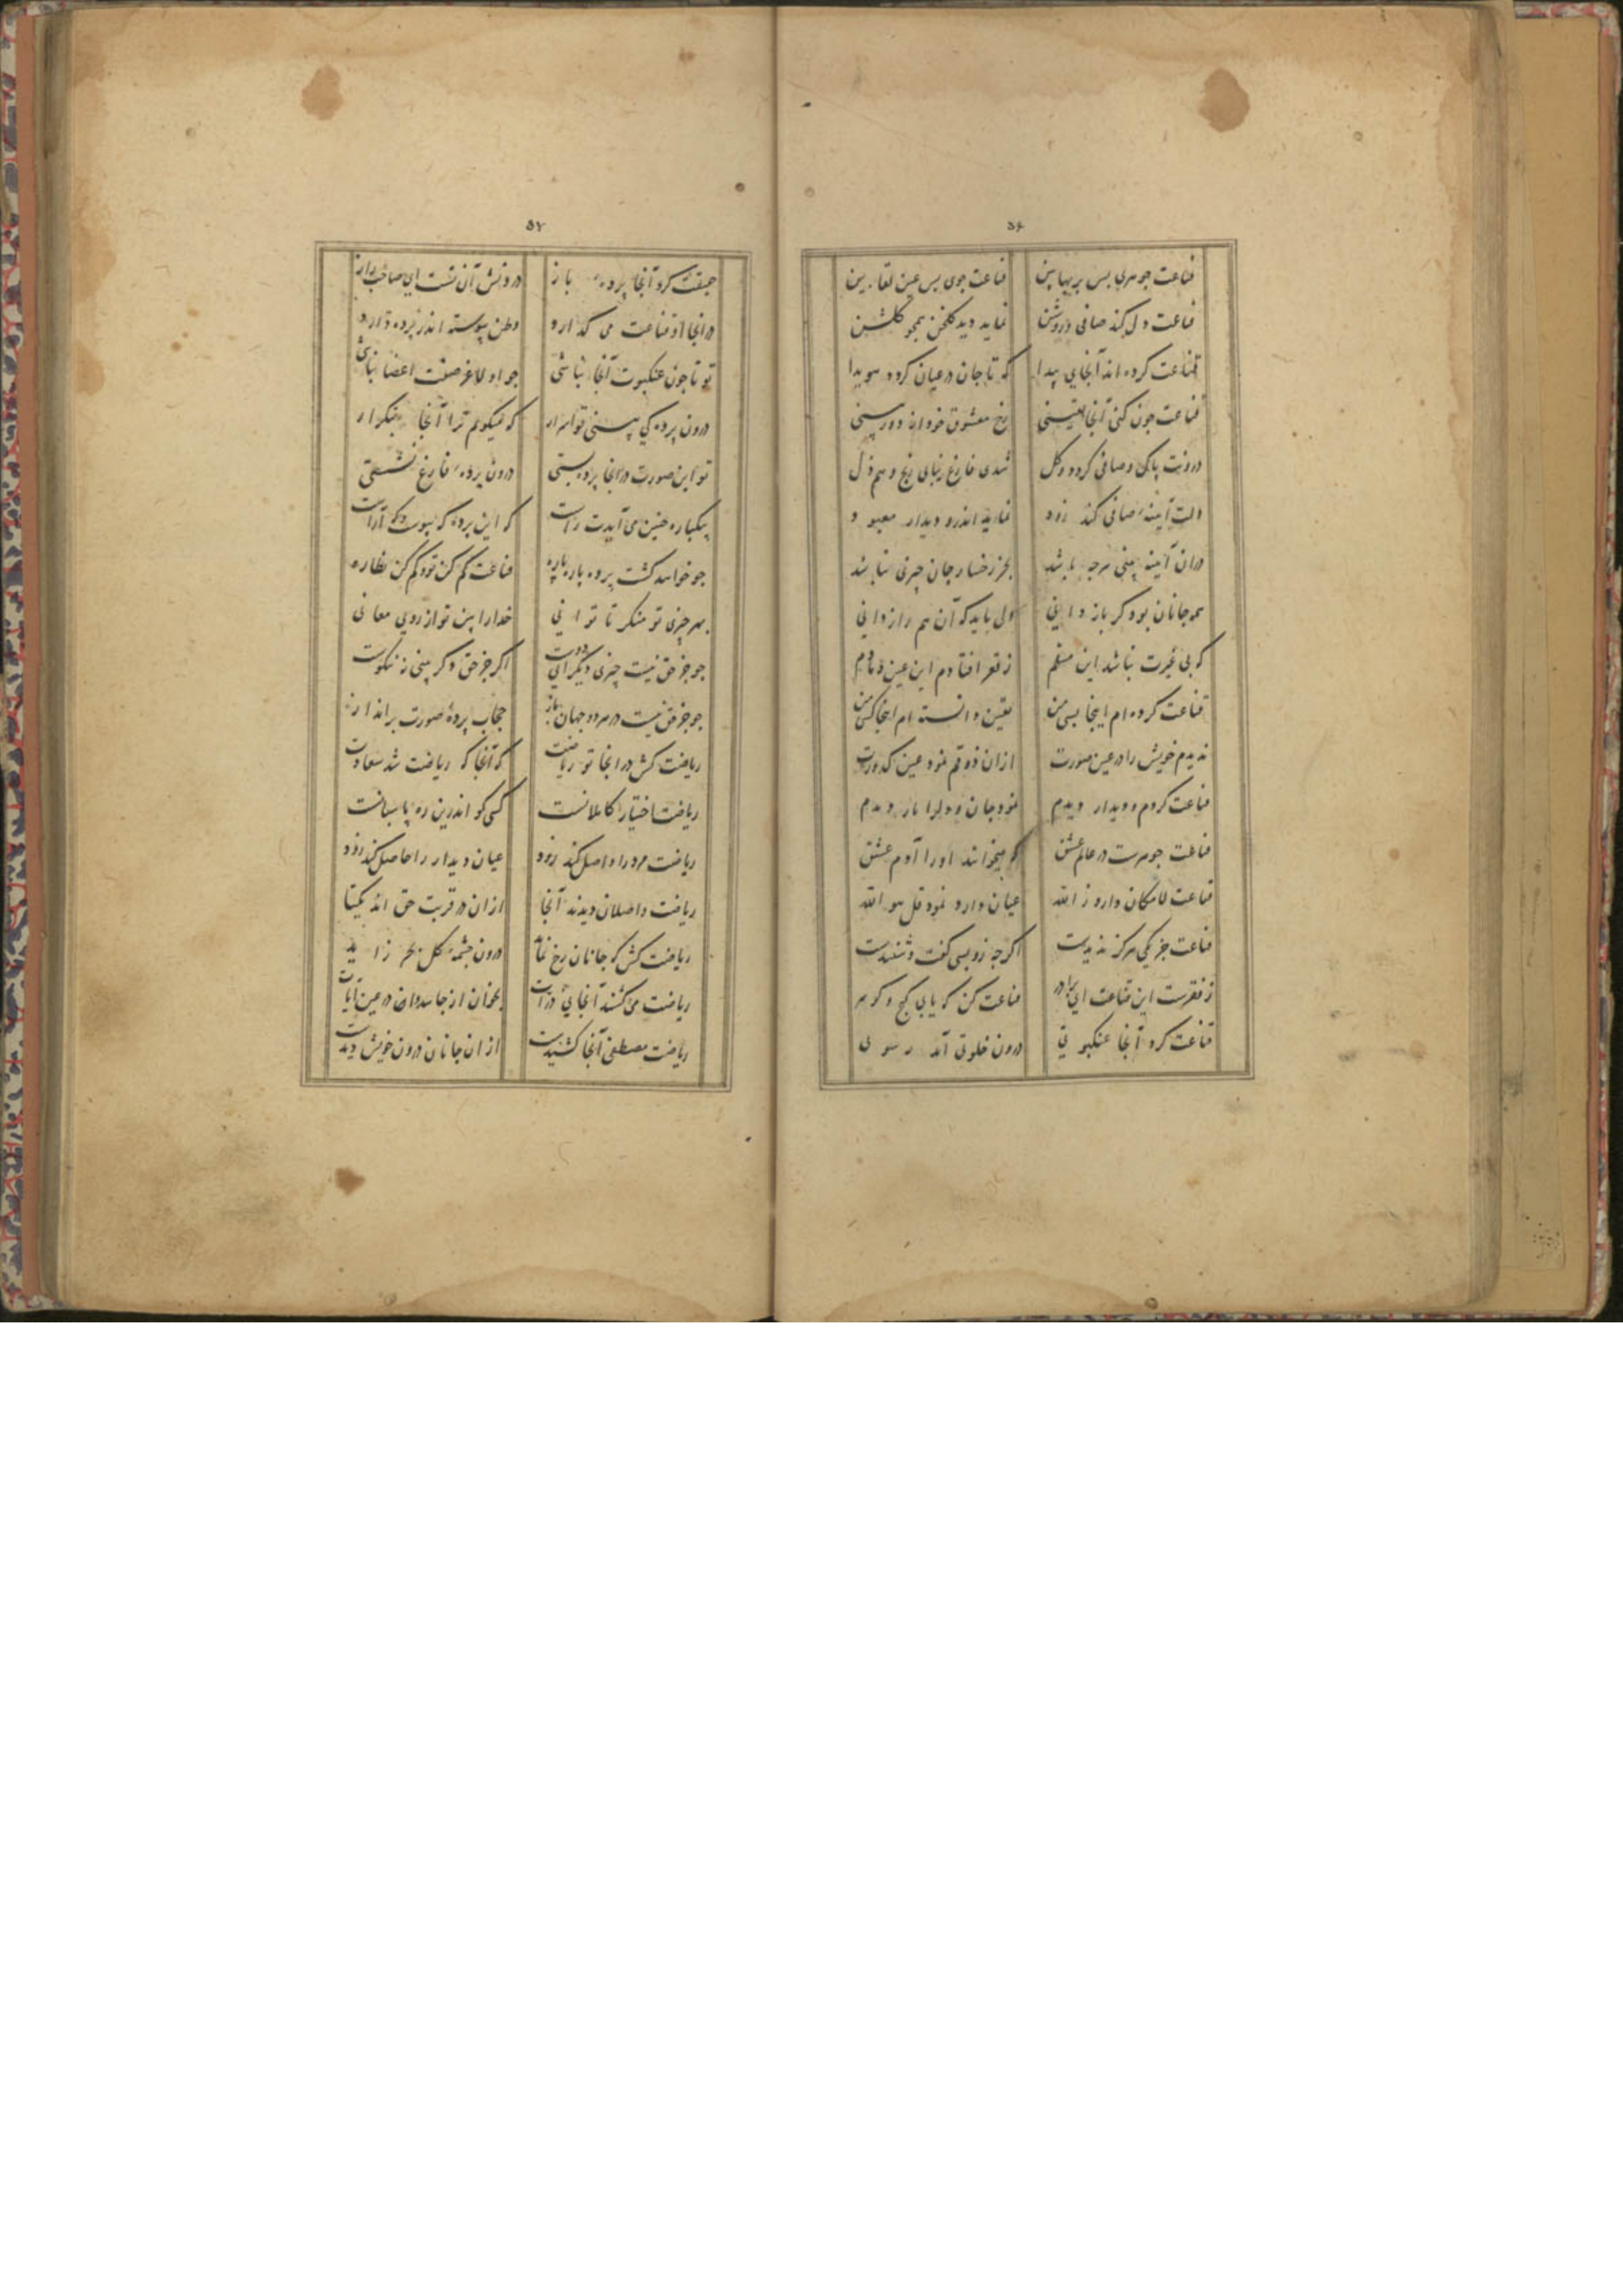 ۵۶
قناعت جوهری بس پربها بین قناعت جوی بس عین لقا بین
قناعت دل کند صافی و روشن نماید دید کلخن همجو کلشن
قناعت کرده اند آنجای پیدا که تا جان در عیان کردد هویدا
قناعت جون کنی آنجا یقینی رخ معشوق خود را
درونت پاک و صافی کردد و کل شدی فارغ زبانی رنج و هم ذل
دلت آیینه صافی کند زود نماید اندرو دیدار معبود
در ان آیینه بینی هرجه باشد بجز رخسار جان جیزی نباشد
همه جانان بود کر باز دانی ولی باید که آن هم راز دانی
که بی غیرت نباشد این مسلم ز فقر افتادم این عین
قناعت کرده ام اینجا بسی من یقین دانسته ام اینجا کسی من
ندیدم خویش را در عین صورت از ان ذوقم نمود عین کدورت
قناعت کردم و دیدار دیدم نمود جان و دل را یار دیدم
قناعت جوهرست در عالم عشق که میخوانند او را آدم عشق
قناعت لامکان دارد ز الله عیان دارد نمود قل هو الله
قناعت جز یکی هرکز ندیدست اکرجه زو بسی کفت و شنیدست
ز فقرست این قناعت ای برادر قناعت کن که یابی کنج و کوهر
قناعت کرد آنجا عنکبوتی درون خلوتی آمد
۵۷
حقیقت کرد آنجا پرده باز درونش آن تست ای صاحب راز
در انجا او قناعت می کذارد وطن پیوسته اندر پرده دارد
تو تا جون عنکبوت آنجا نباشی جو او لاغر صفت اعضا نباشی
درون پرده کی بینی تو اسرار که میکویم ترا آنجا بتکرار
تو این صورت در انجا پرده بستی درون پرده فارغ نشستی
بیکباره جنین می آیدت راست که این پرده که
جو خواهد کشت پرده پاره پاره قناعت کم کن تو و کم کن نظاره
بهر جیزی تو منکر تا توانی خدا را بین تو از روی معانی
جو جز حق نیست جیزی دیکر ای دوست اکر جز حق دکر بینی نه نیکوست
جو جز حق نیست در هر دو جهان باز حجاب پرده صورت برانداز
ریاضت کش در انجا تو ریاضت که آنجا که ریاضت شد سعادت
ریاضت اختیار کاملانست کسی کو اندرین ره پاسبانست
ریاضت مرد را واصل کند زود عیان دیدار را حاصل کند زود
ریاضت واصلان دیدند آنجا از ان در قربت حق اند یکتا
ریاضت کش که جانان رخ نماید درون جشمه کل
ریاضت می کشند آنجای ذرات بخوان از جاهدوا در عین آیات
ریاضت مصطفی آنجا کشیدست از ان جانان درون خویش دیدست